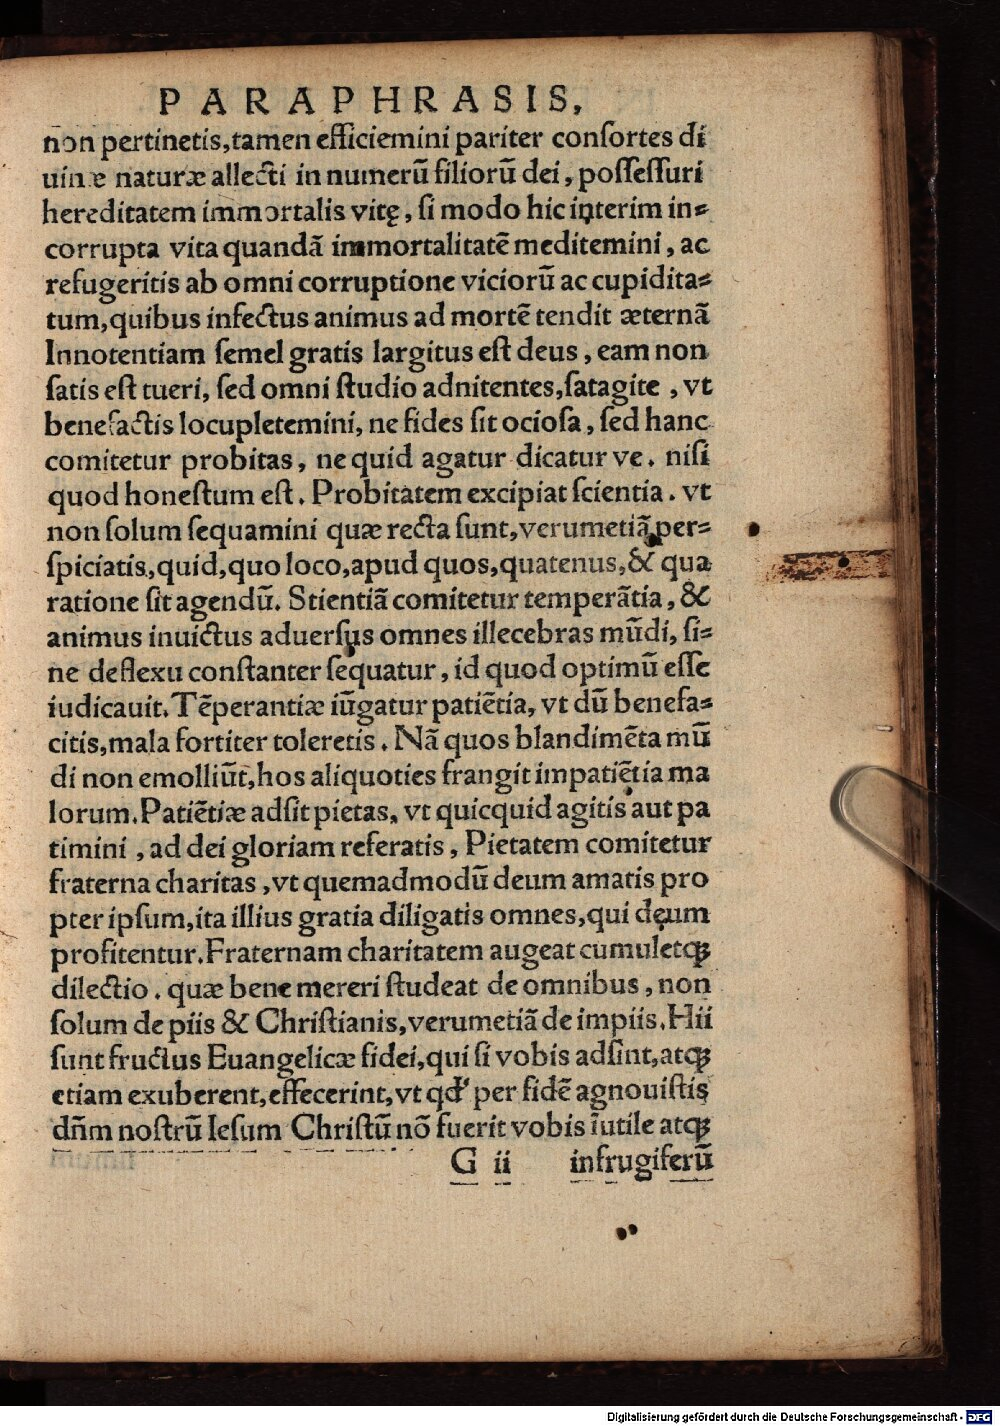 PARAPHRASIS,
non pertinetis,tamen efficiemini pariter conſortes di
uinæ naturæ allecti in numerū filiorū dei, poſſeſſuri
hereditatem immortalis vitę, ſi modo hic interim in⸗
corrupta vita quandā immortalitatē meditemini, ac
refugeritis ab omni corruptione viciorū ac cupidita⸗
tum,quibus infectus animus ad mortē tendit æternā
Innotentiam ſemel gratis largitus eſt deus, eam non
ſatis eſt tueri, ſed omni ſtudio adnitentes,ſatagite, vt
benefactis locupletemini, ne fides ſit ocioſa, ſed hanc
comitetur probitas, ne quid agatur dicatur ve. niſi
quod honeſtum eſt. Probitatem excipiat ſcientia. vt
non ſolum ſequamini quæ recta ſunt,verumetiā per⸗
ſpiciatis,quid,quo loco,apud quos,quatenus,& qua
ratione ſit agendū. Stientiā comitetur temperātia, &
animus inuictus aduerſus omnes illecebras mūdi, ſi⸗
ne deflexu conſtanter ſequatur, id quod optimū eſſe
iudicauit.Tēperantiæ iūgatur patiētia, vt dū benefa⸗
citis,mala fortiter toleretis. Nā quos blandimēta mū
di non emolliūt,hos aliquoties frangit impatiētia ma
lorum.Patiētiæ adſit pietas, vt quicquid agitis aut pa
timini, ad dei gloriam referatis, Pietatem comitetur
fraterna charitas,vt quemadmodū deum amatis pro
pter ipſum,ita illius gratia diligatis omnes,qui deum
profitentur.Fraternam charitatem augeat cumuletqꝫ
dilectio. quæ bene mereri ſtudeat de omnibus, non
ſolum de piis & Chriſtianis,verumetiā de impiis.Hii
ſunt fructus Euangelicæ fidei,qui ſi vobis adſint,atqꝫ
etiam exuberent,effecerint,vt qd' per fidē agnouiſtis
dn̄m noſtrū Ieſum Chriſtū nō fuerit vobis īutile atqꝫ
G ii infrugiferū
Digitalisierung gefördert durch die Deutsche Forschungsgemeinschaft - DFG